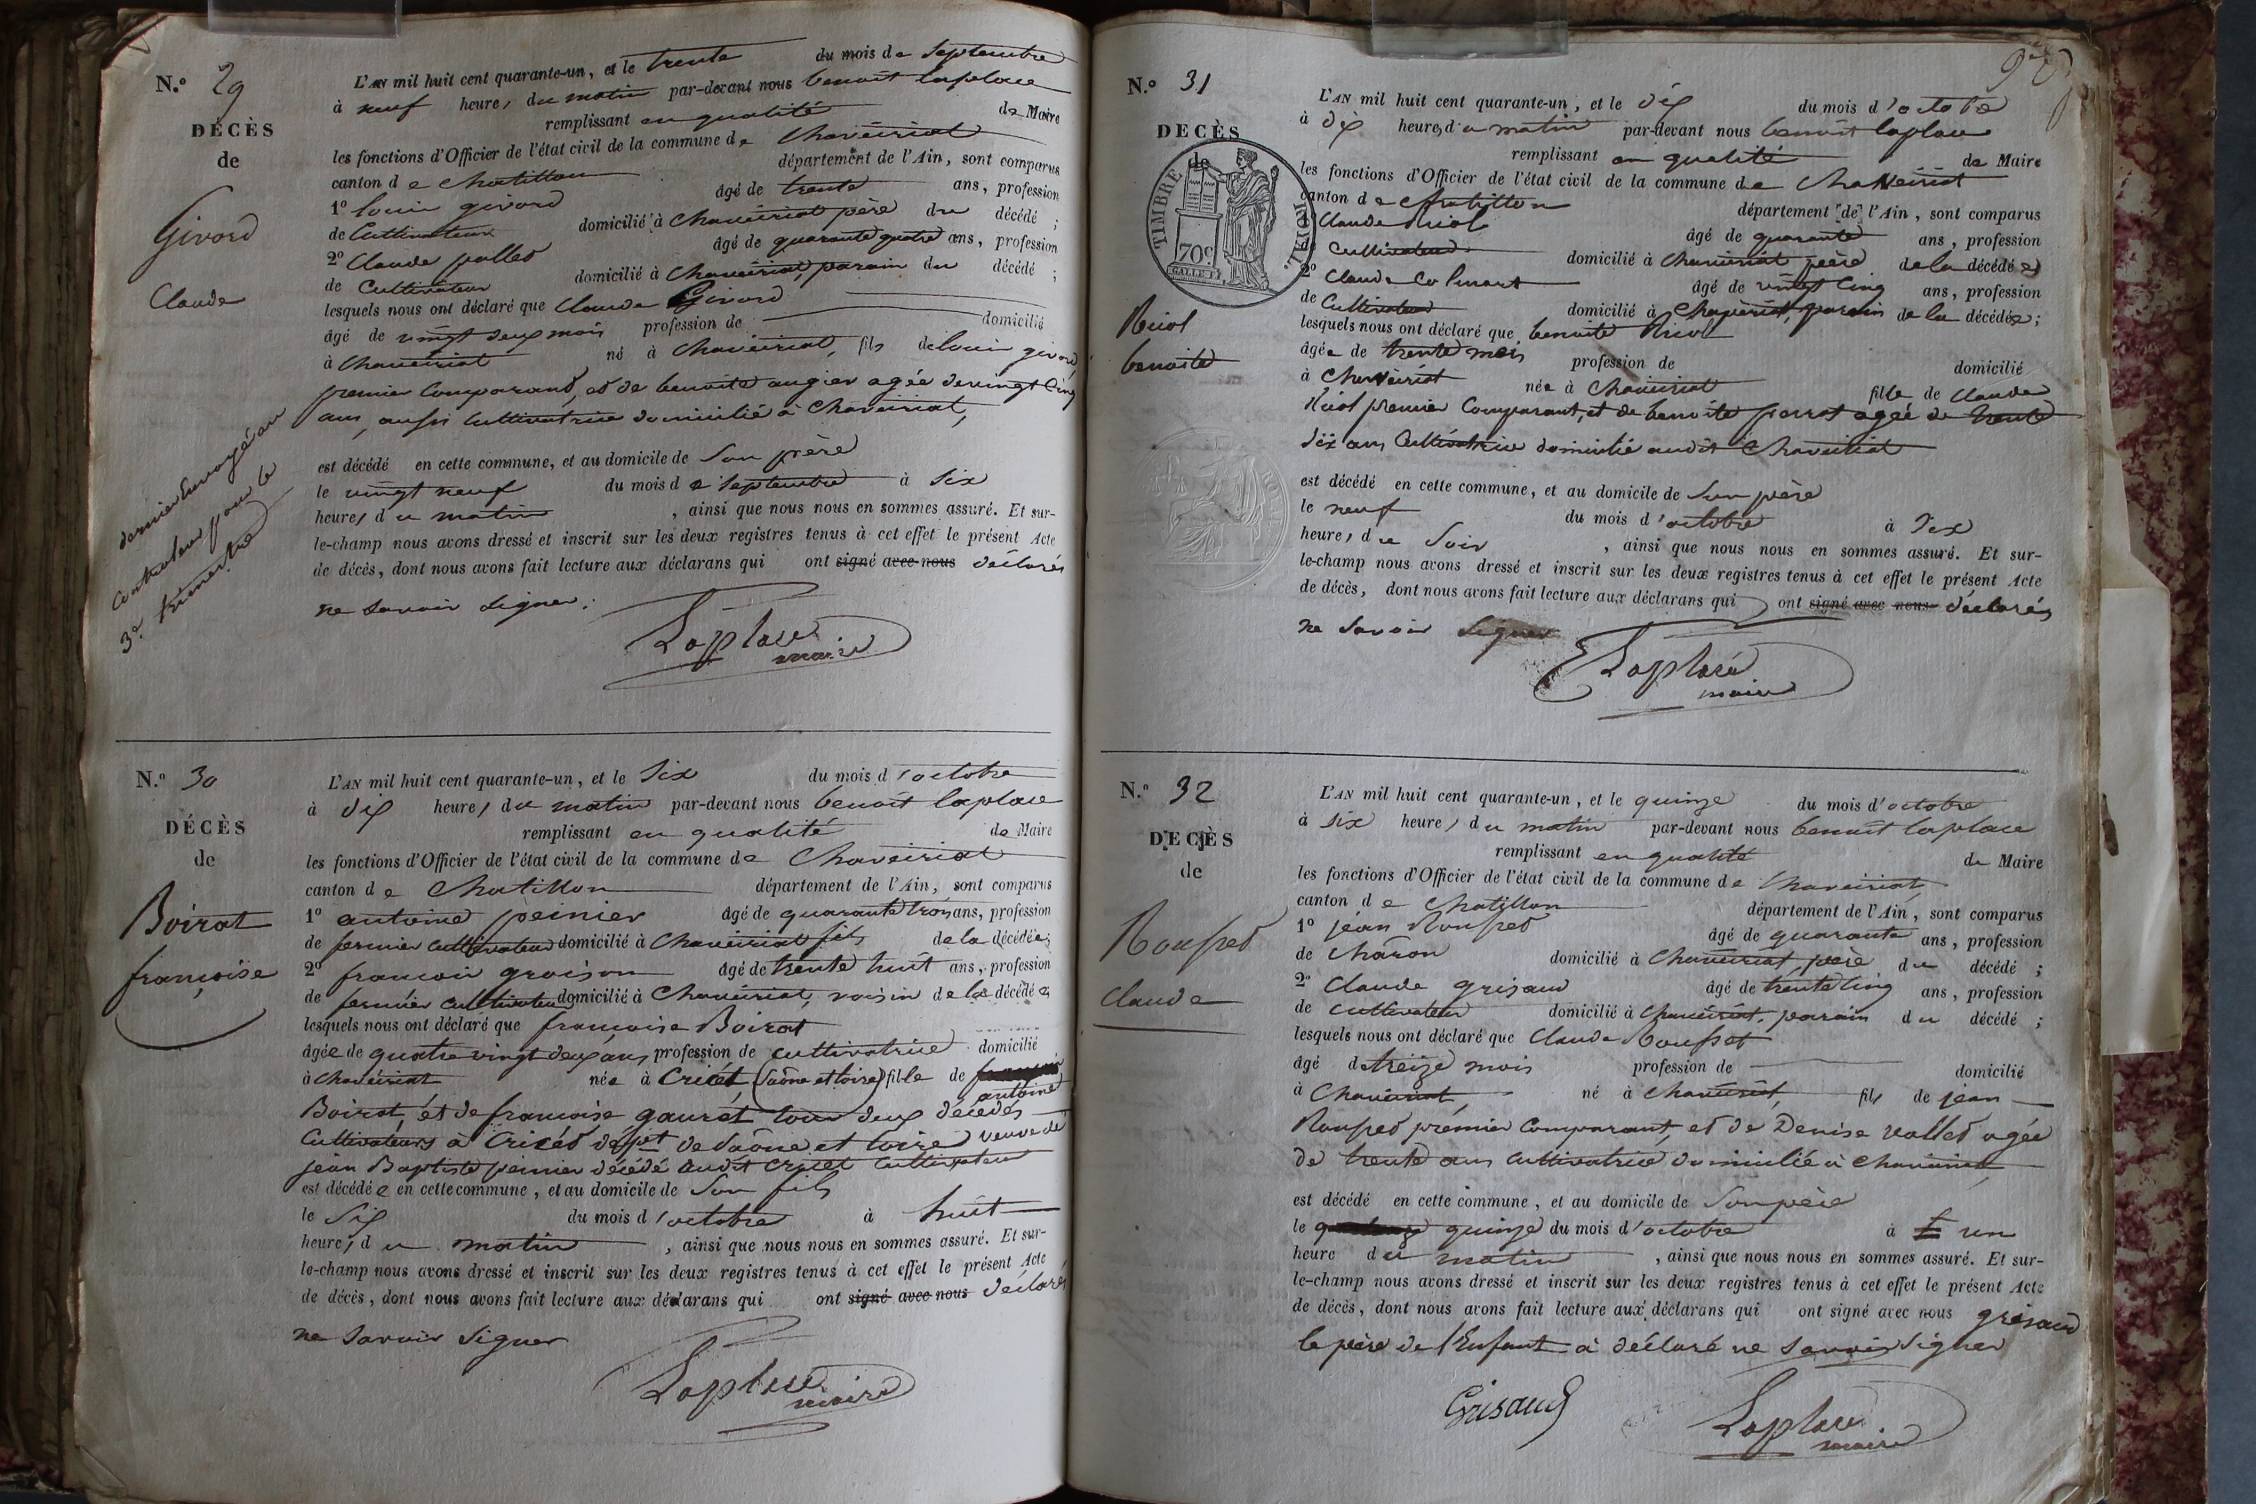 N.º 29
DÉCÈS
de
Givord
Claude
dernier Envoyé au
Controleur pour le
3e trimestre
L'AN mil huit cent quarante-un, et le trente du mois de Septembre
à neuf heures du matin par-devant nous benoit laplace
remplissant en qualité de Maire
les fonctions d'Officier de l'état civil de la commune de Chaveiriat
canton de Chatillon département de l'Ain, sont comparus
1º louis givord âgé de trente ans, profession
de Cultivateur domicilié à Chaveiriat père du décédé ;
2º Claude pallet âgé de quarante quatre ans, profession
de Cultivateur domicilié à Chaveiriat, parain du décédé ;
lesquels nous ont déclaré que Claude Givord
âgé de vingt deux mois profession de domicilié
à Chaveiriat né à Chaveiriat, fils de louis givord
premier Comparant, et de benoite augier agée de vingt Cinq
ans, aussi Cultivatrice domicilié à Chaveiriat,
est décédé en cette commune, et au domicile de Son père
le vingt neuf du mois de Septembre à Six
heures du matin , ainsi que nous nous en sommes assuré. Et sur-
le-champ nous avons dressé et inscrit sur les deux registres tenus à cet effet le présent Acte
de décès, dont nous avons fait lecture aux déclarans qui ont signé avec nous déclarés
ne savoir signer.
Laplace
maire
N.º 30
DÉCÈS
de
Boirat
françoise
L'AN mil huit cent quarante-un, et le Six du mois d'octobre
à dix heures du matin par-devant nous benoit laplace
remplissant en qualité de Maire
les fonctions d'Officier de l'état civil de la commune de Chaveiriat
canton de Chatillon département de l'Ain, sont comparus
1º antoine peinier âgé de quarante trois ans, profession
de fermier cultivateur domicilié à Chaveiriat fils de la décédée;
2º francois groison âgé de trente huit ans, profession
de fermier cultivateur domicilié à Chaveiriat, voisin de la décédée
lesquels nous ont déclaré que francoise Boirat
âgée de quatre vingt deux ans, profession de cultivatrice domicilié
à Chaveiriat née à Cricét (Saône et loire) fille de
antoine
Boirat, et de francoise gaurat tous deux décédés
Cultivateurs à Cricét dépt de Saône et loire veuve de
jean Baptiste peinier décédé audit Cricét Cultivateur
est décédée en cette commune, et au domicile de Son fils
le Six du mois d'octobre à huit
heures du matin , ainsi que nous nous en sommes assuré. Et sur-
le-champ nous avons dressé et inscrit sur les deux registres tenus à cet effet le présent Acte
de décès, dont nous avons fait lecture aux déclarans qui ont signé avec nous déclarés
ne savoir signer
Laplace
maire
N.º 31
DECÈS
de
TIMBRE ROYAL.
70c
GALLE F.
Nicol
benoite
L'AN mil huit cent quarante-un, et le dix du mois d'octobre
à dix heures du matin par-devant nous benoit laplace
remplissant en qualité de Maire
les fonctions d'Officier de l'état civil de la commune de Chaveiriat
canton de Chatillon département de l'Ain, sont comparus
Claude Nicol âgé de quarante ans, profession
de Cultivateur domicilié à Chaveiriat père de la décédée
2º Claude Colmart âgé de vingt Cinq ans, profession
de Cultivateur domicilié à Chaveiriat, parain de la décédée;
lesquels nous ont déclaré que benoite Nicol
âgée de trente mois profession de domicilié
à Chaveiriat née à Chaveiriat fille de Claude
Nicol premier Comparant, et de benoite perrat agée de trente
Six ans Cultivatrice domicilié audit Chaveiriat
est décédé en cette commune, et au domicile de Son père
le neuf du mois d'octobre à Six
heures du Soir , ainsi que nous nous en sommes assuré. Et sur-
le-champ nous avons dressé et inscrit sur les deux registres tenus à cet effet le présent Acte
de décès, dont nous avons fait lecture aux déclarans qui ont signé avec nous déclarés
ne savoir signer
Laplace
maire
N.º 32
DECÈS
de
Rousset
Claude
L'AN mil huit cent quarante-un, et le quinze du mois d'octobre
à six heures du matin par-devant nous benoit laplace
remplissant en qualité de Maire
les fonctions d'Officier de l'état civil de la commune de Chaveiriat
canton de Chatillon département de l'Ain, sont comparus
1º jean Rousset âgé de quarante ans, profession
de charon domicilié à Chaveiriat, père du décédé ;
2º Claude grisaud âgé de trente Cinq ans, profession
de cultivateur domicilié à Chaveiriat, parain du décédé ;
lesquels nous ont déclaré que Claude Rousset
âgé de treize mois profession de domicilié
à Chaveiriat, né à Chaveiriat, fils de jean
Rousset prémier Comparant, et de Denise vallet agée
de trente ans cultivatrice domiciliée à Chaveiriat
est décédé en cette commune, et au domicile de Son père
le quinze du mois d'octobre à un
heure du matin , ainsi que nous nous en sommes assuré. Et sur-
le-champ nous avons dressé et inscrit sur les deux registres tenus à cet effet le présent Acte
de décès, dont nous avons fait lecture aux déclarans qui ont signé avec nous grisaud
le père de l'Enfant à déclaré ne savoir signer
Grisaud
Laplace
maire